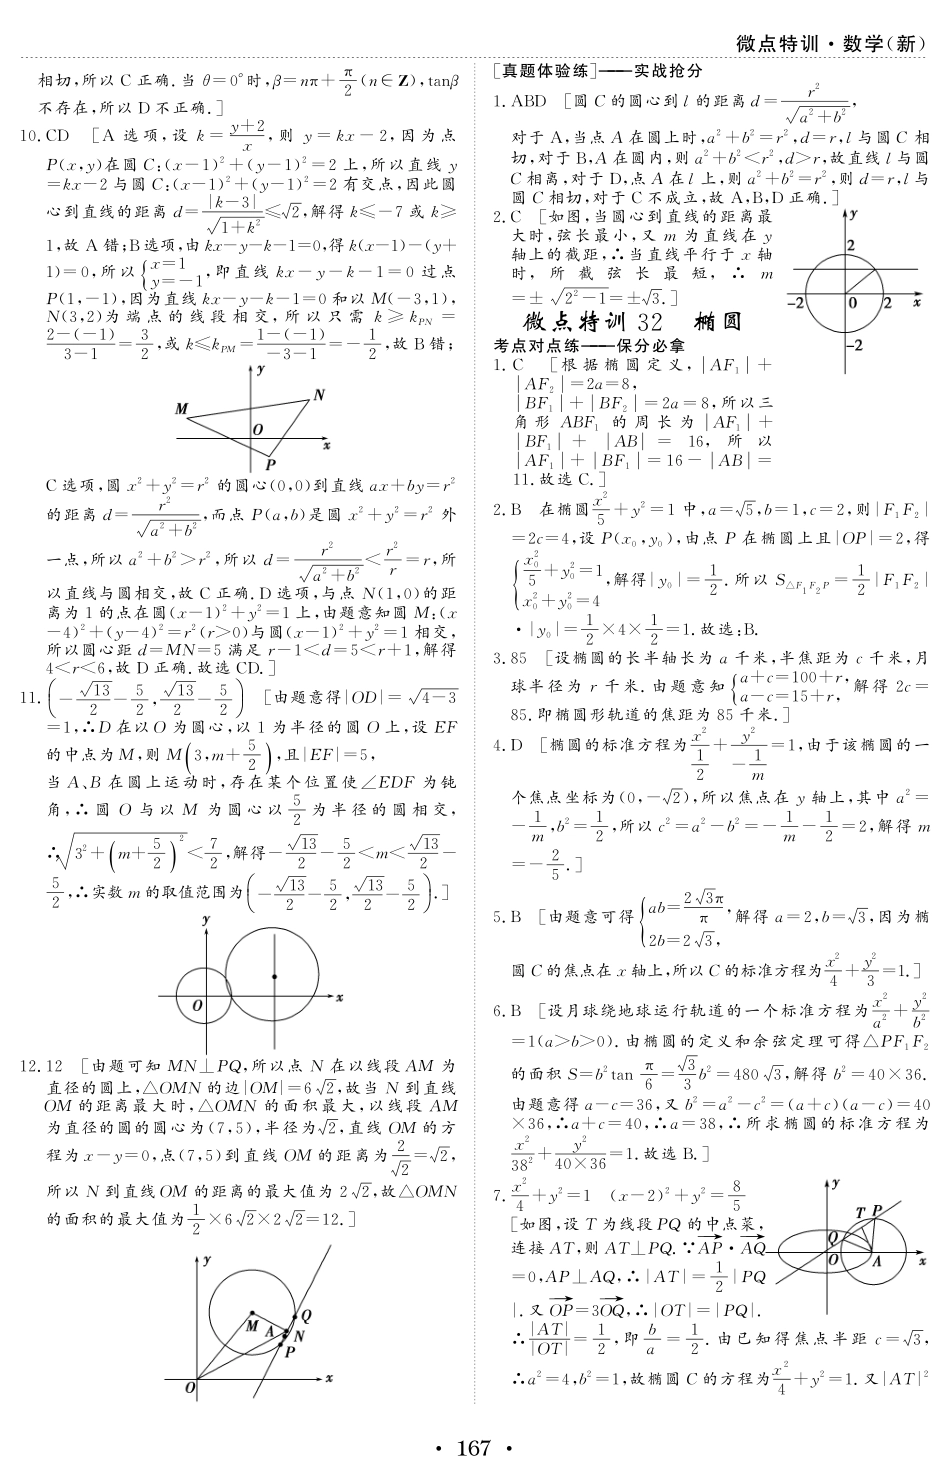 微点特训·数学(新)
相切,所以 C 正确.当 θ=0°时,β=nπ+π/2(n∈Z),tanβ
不存在,所以 D 不正确.]
10.CD [A 选项,设 k=(y+2)/x,则 y=kx-2,因为点
P(x,y)在圆 C:(x-1)²+(y-1)²=2 上,所以直线 y
=kx-2 与圆 C:(x-1)²+(y-1)²=2 有交点,因此圆
心到直线的距离 d=|k-3|/√(1+k²)≤√2,解得 k≤-7 或 k≥
1,故 A 错;B选项,由 kx-y-k-1=0,得 k(x-1)-(y+
1)=0,所以{x=1 y=-1,即直线 kx-y-k-1=0 过点
P(1,-1),因为直线 kx-y-k-1=0 和以 M(-3,1),
N(3,2)为端点的线段相交,所以只需 k≥kPN=
(2-(-1))/(3-1)=3/2,或 k≤kPM=(1-(-1))/(-3-1)=-1/2,故 B 错;
y
M N
O x
P
C 选项,圆 x²+y²=r² 的圆心(0,0)到直线 ax+by=r²
的距离 d=r²/√(a²+b²),而点 P(a,b)是圆 x²+y²=r² 外
一点,所以 a²+b²>r²,所以 d=r²/√(a²+b²)<r²/r=r,所
以直线与圆相交,故 C 正确.D 选项,与点 N(1,0)的距
离为 1 的点在圆(x-1)²+y²=1 上,由题意知圆 M:(x
-4)²+(y-4)²=r²(r>0)与圆(x-1)²+y²=1 相交,
所以圆心距 d=MN=5 满足 r-1<d=5<r+1,解得
4<r<6,故 D 正确.故选 CD.]
11.(-√13/2-5/2,√13/2-5/2) [由题意得|OD|=√(4-3)
=1,∴D 在以 O 为圆心,以 1 为半径的圆 O 上,设 EF
的中点为 M,则 M(3,m+5/2),且|EF|=5,
当 A、B 在圆上运动时,存在某个位置使∠EDF 为钝
角,∴圆 O 与以 M 为圆心以 5/2 为半径的圆相交,
∴√(3²+(m+5/2)²)<7/2,解得-√13/2-5/2<m<√13/2-
5/2,∴实数 m 的取值范围为(-√13/2-5/2,√13/2-5/2).]
y
O x
12.12 [由题可知 MN⊥PQ,所以点 N 在以线段 AM 为
直径的圆上,△OMN 的边|OM|=6√2,故当 N 到直线
OM 的距离最大时,△OMN 的面积最大,以线段 AM
为直径的圆的圆心为(7,5),半径为√2,直线 OM 的方
程为 x-y=0,点(7,5)到直线 OM 的距离为 2/√2=√2,
所以 N 到直线 OM 的距离的最大值为 2√2,故△OMN
的面积的最大值为 1/2×6√2×2√2=12.]
y
Q
M A N
P
O x
[真题体验练]——实战抢分
1.ABD [圆 C 的圆心到 l 的距离 d=r²/√(a²+b²),
对于 A,当点 A 在圆上时,a²+b²=r²,d=r,l 与圆 C 相
切,对于 B,A 在圆内,则 a²+b²<r²,d>r,故直线 l 与圆
C 相离,对于 D,点 A 在 l 上,则 a²+b²=r²,则 d=r,l 与
圆 C 相切,对于 C 不成立,故 A,B,D 正确.]
2.C [如图,当圆心到直线的距离最
大时,弦长最小,又 m 为直线在 y
轴上的截距,∴当直线平行于 x 轴
时,所截弦长最短,∴ m
=±√(2²-1)=±√3.]
y
2
-2 0 2 x
-2
微点特训 32 椭圆
考点对点练——保分必拿
1.C [根据椭圆定义,|AF₁|+
|AF₂|=2a=8,
|BF₁|+|BF₂|=2a=8,所以三
角形 ABF₁ 的周长为|AF₁|+
|BF₁|+|AB|=16,所以
|AF₁|+|BF₁|=16-|AB|=
11.故选 C.]
2.B 在椭圆 x²/5+y²=1 中,a=√5,b=1,c=2,则|F₁F₂|
=2c=4,设 P(x₀,y₀),由点 P 在椭圆上且|OP|=2,得
{x₀²/5+y₀²=1 x₀²+y₀²=4,解得|y₀|=1/2.所以 S△F₁F₂P=1/2|F₁F₂|
·|y₀|=1/2×4×1/2=1.故选:B.
3.85 [设椭圆的长半轴长为 a 千米,半焦距为 c 千米,月
球半径为 r 千米.由题意知{a+c=100+r, a-c=15+r,解得 2c=
85.即椭圆形轨道的焦距为 85 千米.]
4.D [椭圆的标准方程为 x²/(1/2)+y²/(-1/m)=1,由于该椭圆的一
个焦点坐标为(0,-√2),所以焦点在 y 轴上,其中 a²=
-1/m,b²=1/2,所以 c²=a²-b²=-1/m-1/2=2,解得 m
=-2/5.]
5.B [由题意可得{ab=2√3π/π, 2b=2√3,解得 a=2,b=√3,因为椭
圆 C 的焦点在 x 轴上,所以 C 的标准方程为 x²/4+y²/3=1.]
6.B [设月球绕地球运行轨道的一个标准方程为 x²/a²+y²/b²
=1(a>b>0).由椭圆的定义和余弦定理可得△PF₁F₂
的面积 S=b²tan π/6=√3/3 b²=480√3,解得 b²=40×36.
由题意得 a-c=36,又 b²=a²-c²=(a+c)(a-c)=40
×36,∴a+c=40,∴a=38,∴所求椭圆的标准方程为
x²/38²+y²/(40×36)=1.故选 B.]
7.x²/4+y²=1 (x-2)²+y²=8/5
[如图,设 T 为线段 PQ 的中点菜,
连接 AT,则 AT⊥PQ.∵AP·AQ
=0,AP⊥AQ,∴|AT|=1/2|PQ
|.又OP=3OQ,∴|OT|=|PQ|.
y
T P
Q
O A x
∴|AT|/|OT|=1/2,即 b/a=1/2.由已知得焦点半距 c=√3,
∴a²=4,b²=1,故椭圆 C 的方程为 x²/4+y²=1.又|AT|²
· 167 ·